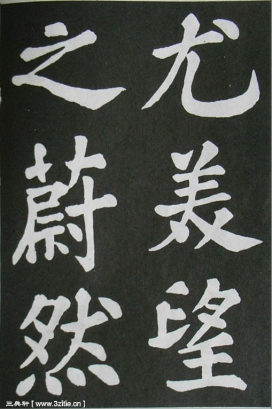 尤美望
之蔚然
三典轩【www.3zitie.cn】